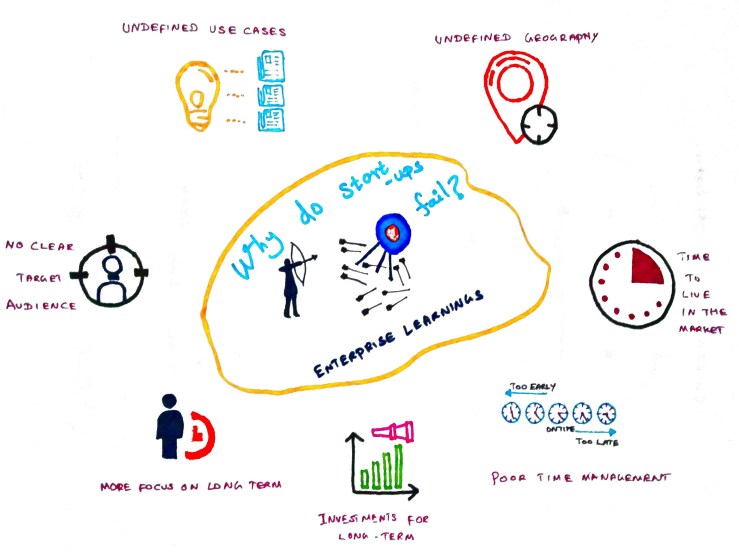 UNDEFINED USE CASES
UNDEFINED GEOGRAPHY
Why do start-ups fail?
ENTERPRISE LEARNINGS
NO CLEAR
TARGET
AUDIENCE
TIME
TO
LIVE
IN THE
MARKET
MORE FOCUS ON LONG TERM
INVESTMENTS FOR
LONG-TERM
TOO EARLY
ONTIME
TOO LATE
POOR TIME MANAGEMENT